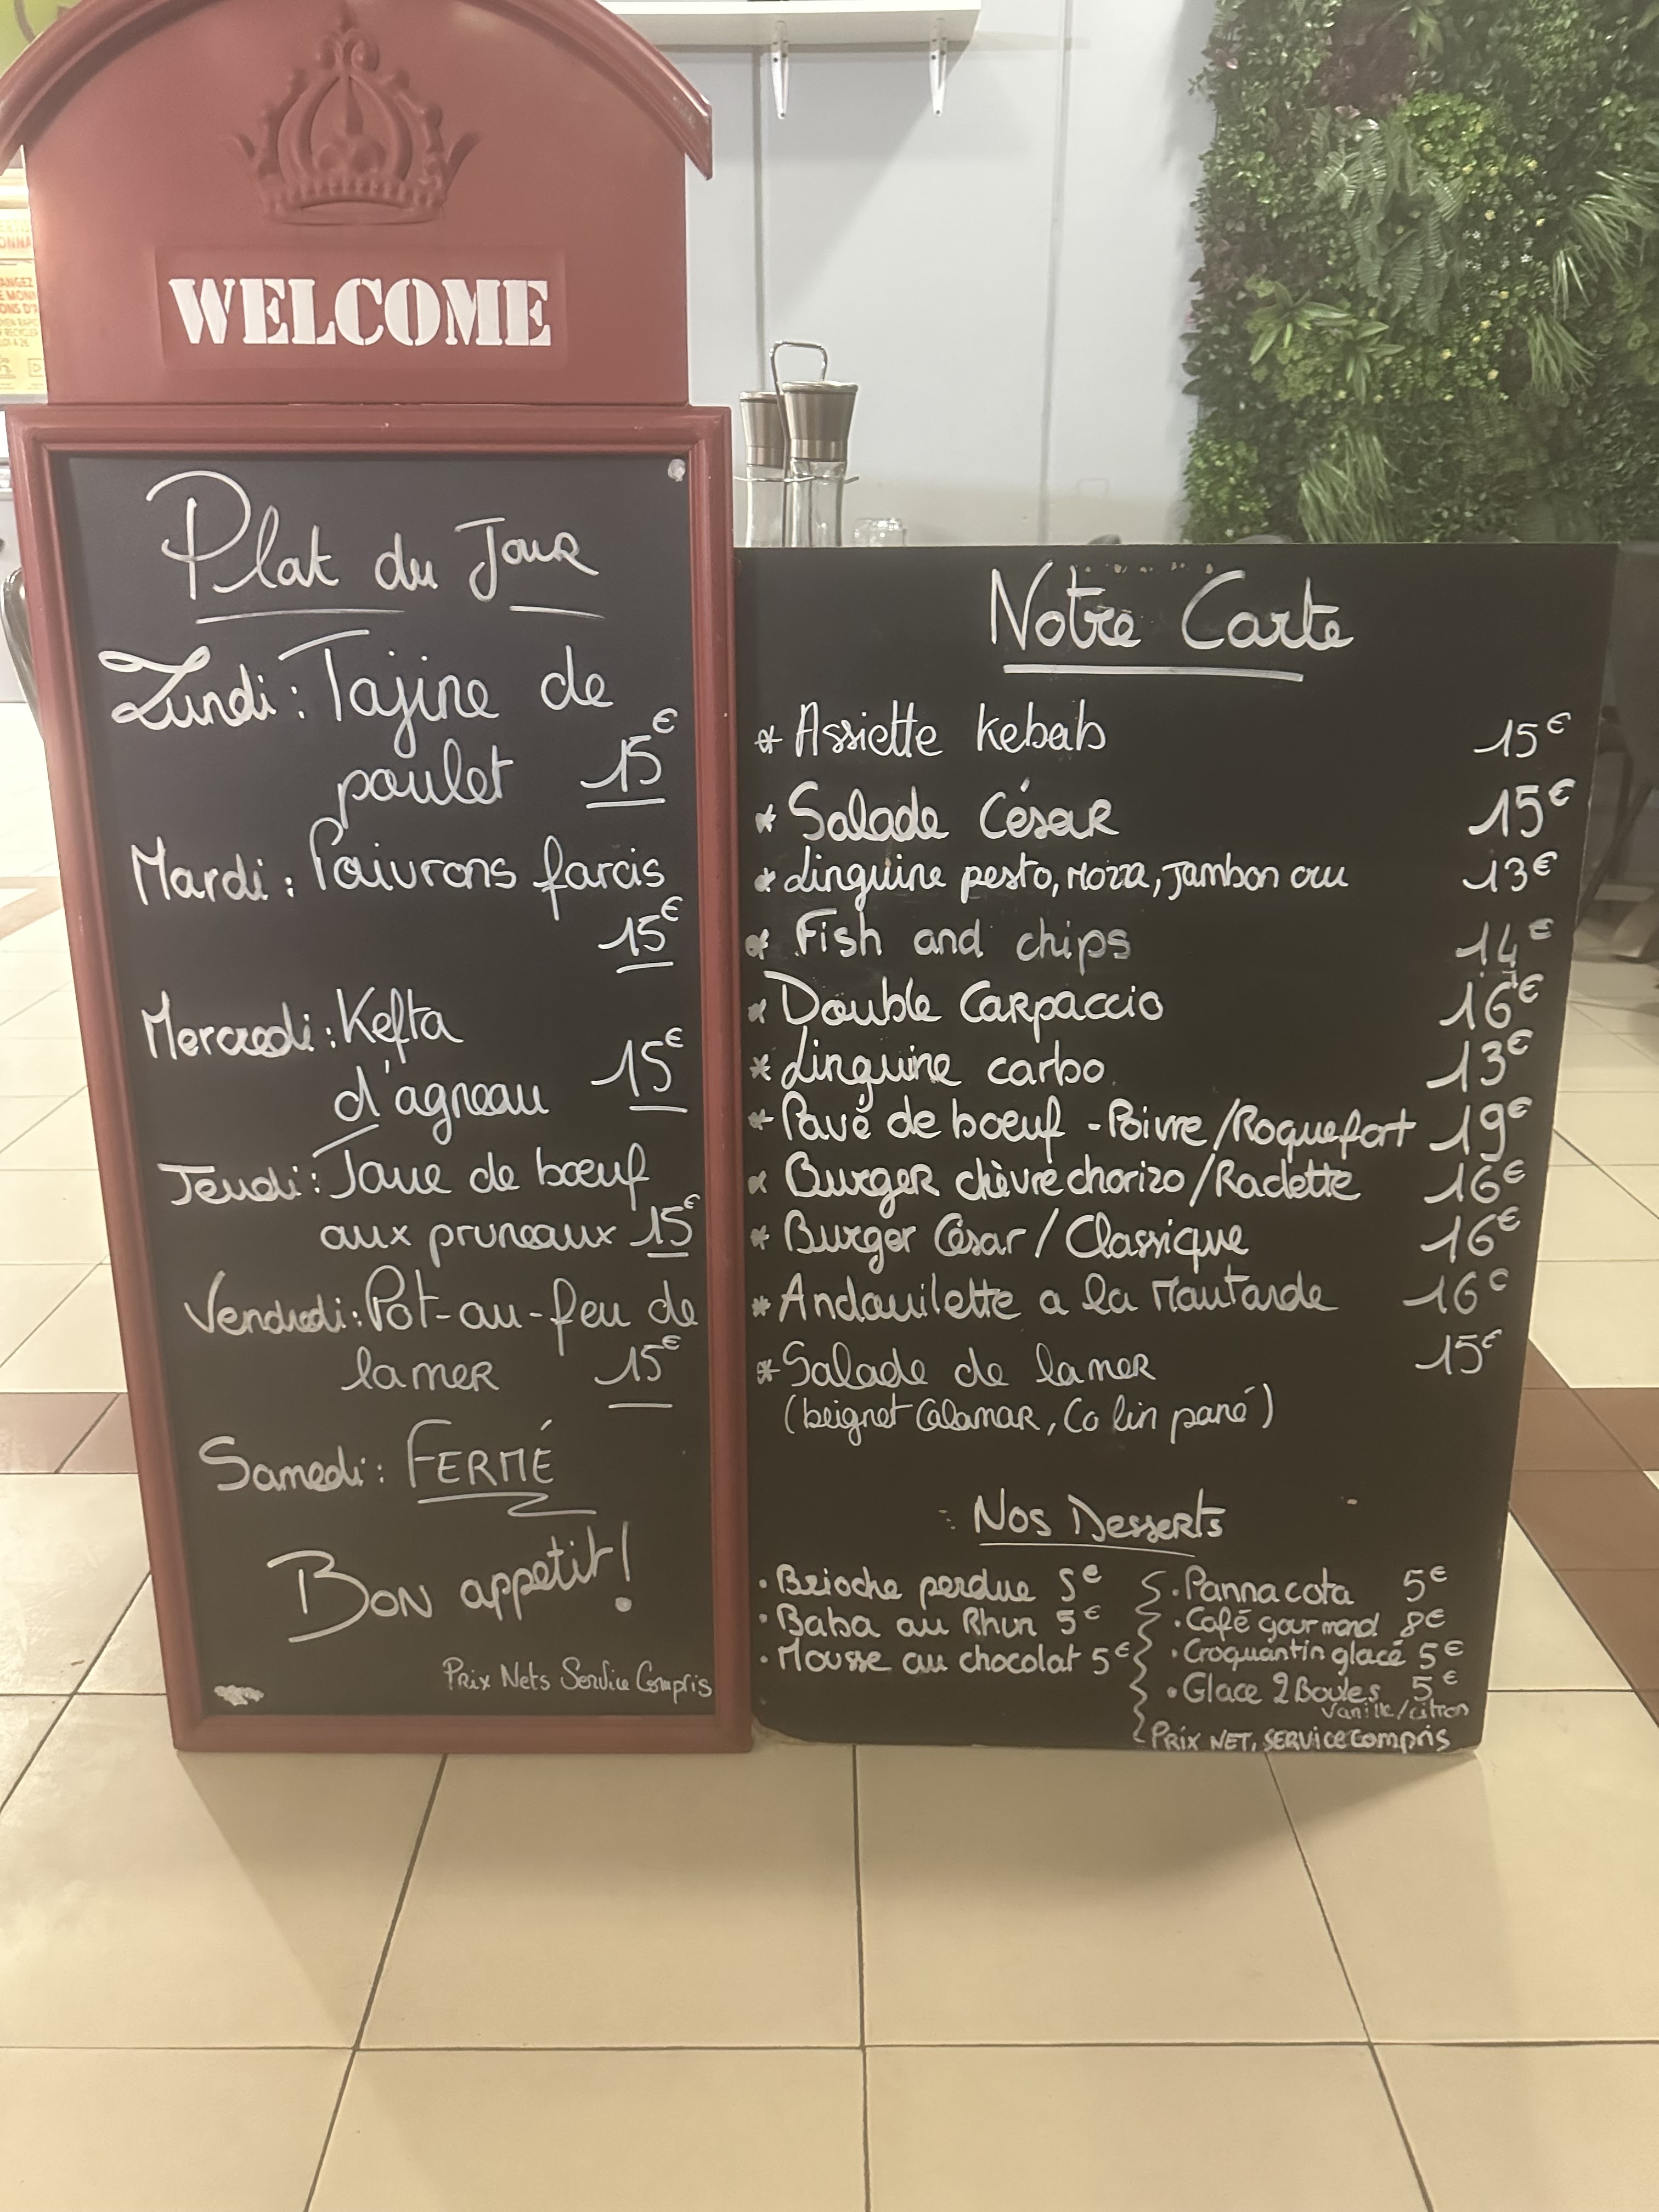 WELCOME
Plat du Jour
Lundi : Tajine de
poulet 15€
Mardi : Poivrons farcis
15€
Mercredi : Kefta
d'agneau 15€
Jeudi : Joue de bœuf
aux pruneaux 15€
Vendredi : Pot-au-feu de
la mer 15€
Samedi : FERMÉ
Bon appetit !
Prix Nets Service Compris
Notre Carte
* Assiette kebab 15€
* Salade César 15€
* Linguine pesto, Mozza, Jambon cru 13€
* Fish and chips 14€
* Double Carpaccio 16€
* Linguine carbo 13€
* Pavé de boeuf - Poivre/Roquefort 19€
* Burger chèvre chorizo/Raclette 16€
* Burger César / Classique 16€
* Andouilette a la Moutarde 16€
* Salade de la mer 15€
(beignet Calamar, Colin pané)
Nos Desserts
• Brioche perdue 5€
• Baba au Rhum 5€
• Mousse au chocolat 5€
• Pannacota 5€
• Café gourmand 8€
• Croquantin glacé 5€
• Glace 2 Boules 5€
Vanille/citron
Prix NET, Service compris